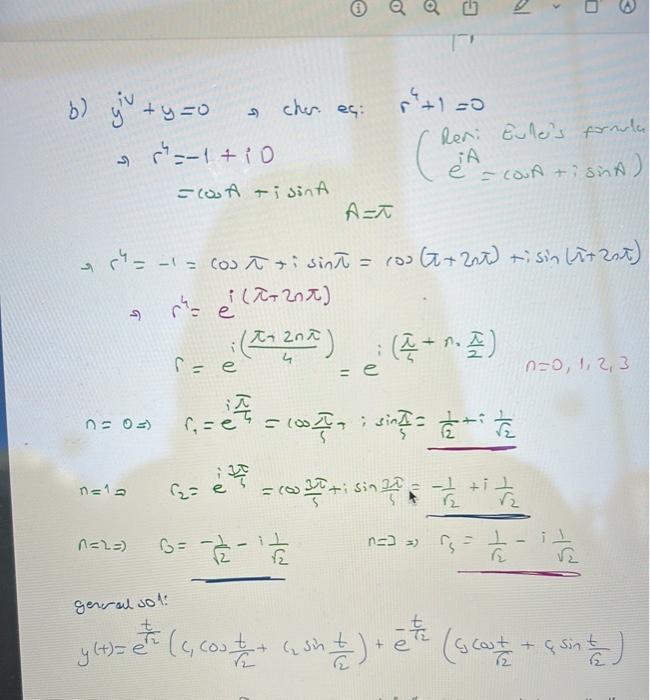 b) y^iv + y = 0 → char. eq: r^4 + 1 = 0
→ r^4 = -1 + i0
(Rem: Euler's formula
= cosA + i sinA
e^{iA} = cosA + i sinA)
A = π
→ r^4 = -1 = cos π + i sin π = cos(π + 2nπ) + i sin(π + 2nπ)
→ r^4 = e^{i(π + 2nπ)}
r = e^{i((π + 2nπ)/4)} = e^{i(π/4 + n·π/2)} n = 0, 1, 2, 3
n = 0 ⇒ r₁ = e^{iπ/4} = cos π/4 + i sin π/4 = 1/√2 + i 1/√2
n = 1 ⇒ r₂ = e^{i3π/4} = cos 3π/4 + i sin 3π/4 = -1/√2 + i 1/√2
n = 2 ⇒ r₃ = -1/√2 - i 1/√2 n = 3 ⇒ r₄ = 1/√2 - i 1/√2
general sol:
y(t) = e^{t/√2} (c₁ cos t/√2 + c₂ sin t/√2) + e^{-t/√2} (c₃ cos t/√2 + c₄ sin t/√2)